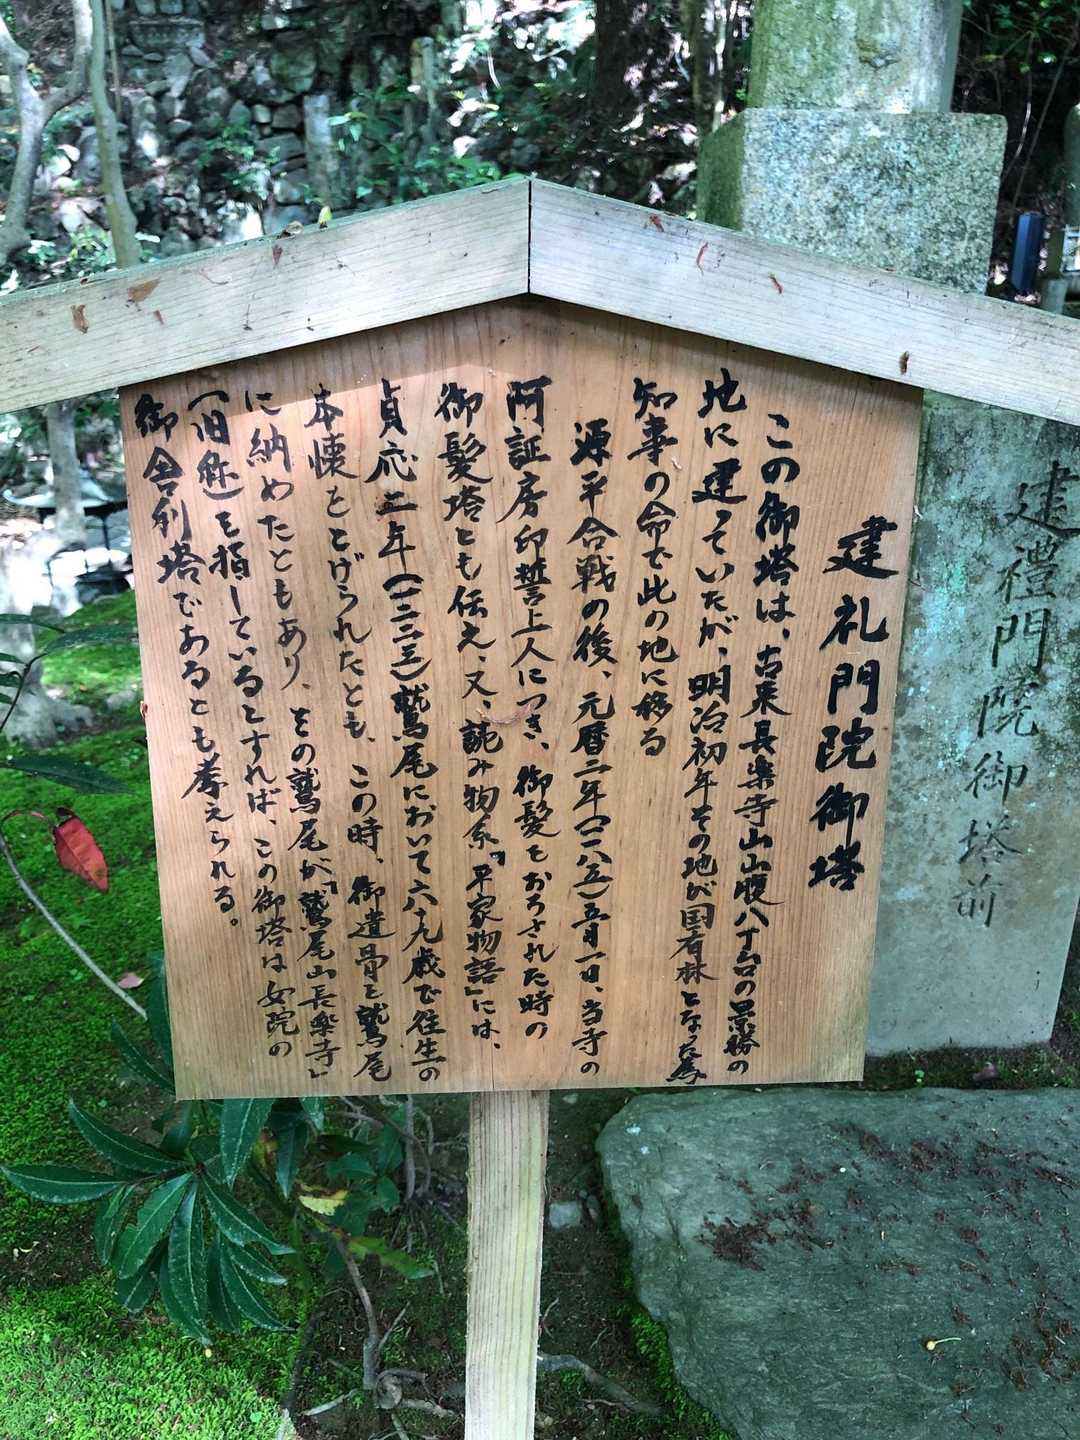 建礼門院御塔
この御塔は、古来長楽寺山山腹八丁台の景勝の
地に建っていたが、明治初年その地が国有林となった為
知事の命で此の地に移る
源平合戦の後、元暦二年(一一八五)五月一日、当寺の
阿証房印誓上人につき、御髪をおろされた時の
御髪塔とも伝え、又、読み物系『平家物語』には、
貞応二年(一二二三)鷲尾において六九歳で往生の
本懐をとげられたとも、この時、御遺骨を鷲尾
に納めたともあり、その鷲尾が『鷲尾山長楽寺』
(旧称)を指しているとすれば、この御塔は女院の
御舎利塔であるとも考えられる。
建禮門院御塔前